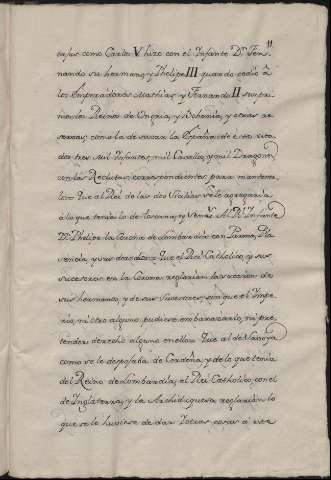 11
tajas como Carlos V. hizo con el Infante Dn. Fer-
nando su hermano, y Phelipe III quando cedió à
los Emperadores Mathias, y Fernando II sus pri-
mos los Reinos de Ungria, y Bohemia, y otras re-
servas, con la de sacar la España de estos esta
dos tres mil Infantes, mil Cavallos, y mil Dragones
con las Reclutas correspondientes para mantener
los. Que al Rei de las dos Sicilias se le agregaria
à lo que tenia lo de Toscana, y Senâ. Al Rl. Infante
Dn. Phelipe la Corona de Lombardia con Parma, Pla
sencia, y sus dominios. Que el Rei Catholico, y sus
sucesores en la Corona reglarian la sucesion de
sus hermanos, y de sus sucesores, sin que el Impe
rio, ni otro alguno pudiese embarazarlo, ni pre
tender derecho alguno en ellos. Que al de Saboya
como se le despojaba de Cerdeña, y de lo que tenia
del Reino de Lombardia, el Rei Catholico, con el
de Inglaterra, y la Archiduquesa reglarian lo
que se le huviese de dar. Votras cosas à este